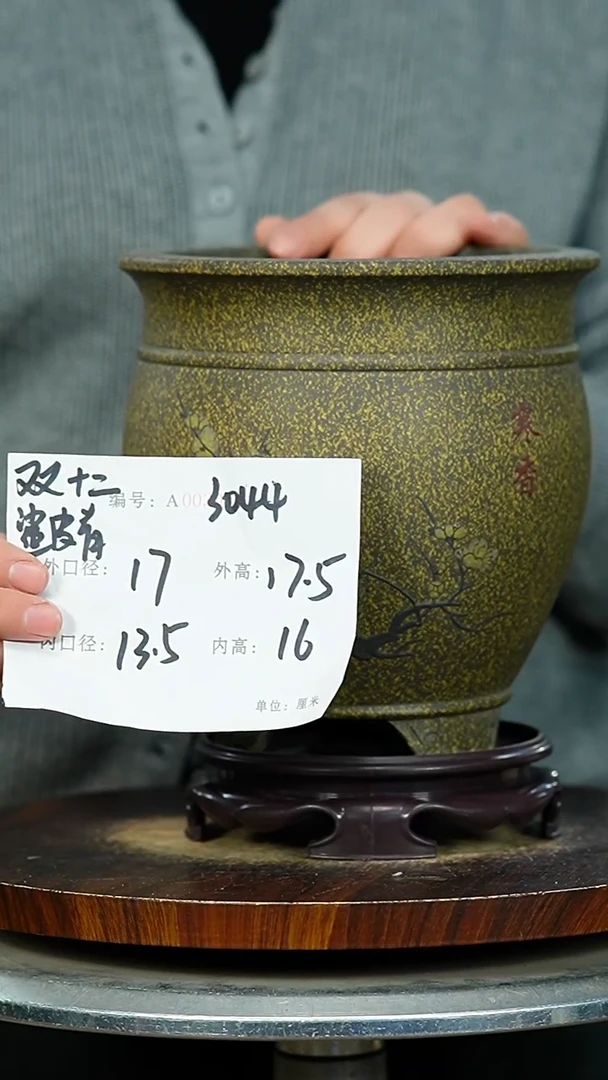 双十二
编号: A00 3044
鲨皮青
外口径: 17 外高: 17.5
内口径: 13.5 内高: 16
单位: 厘米
寒香